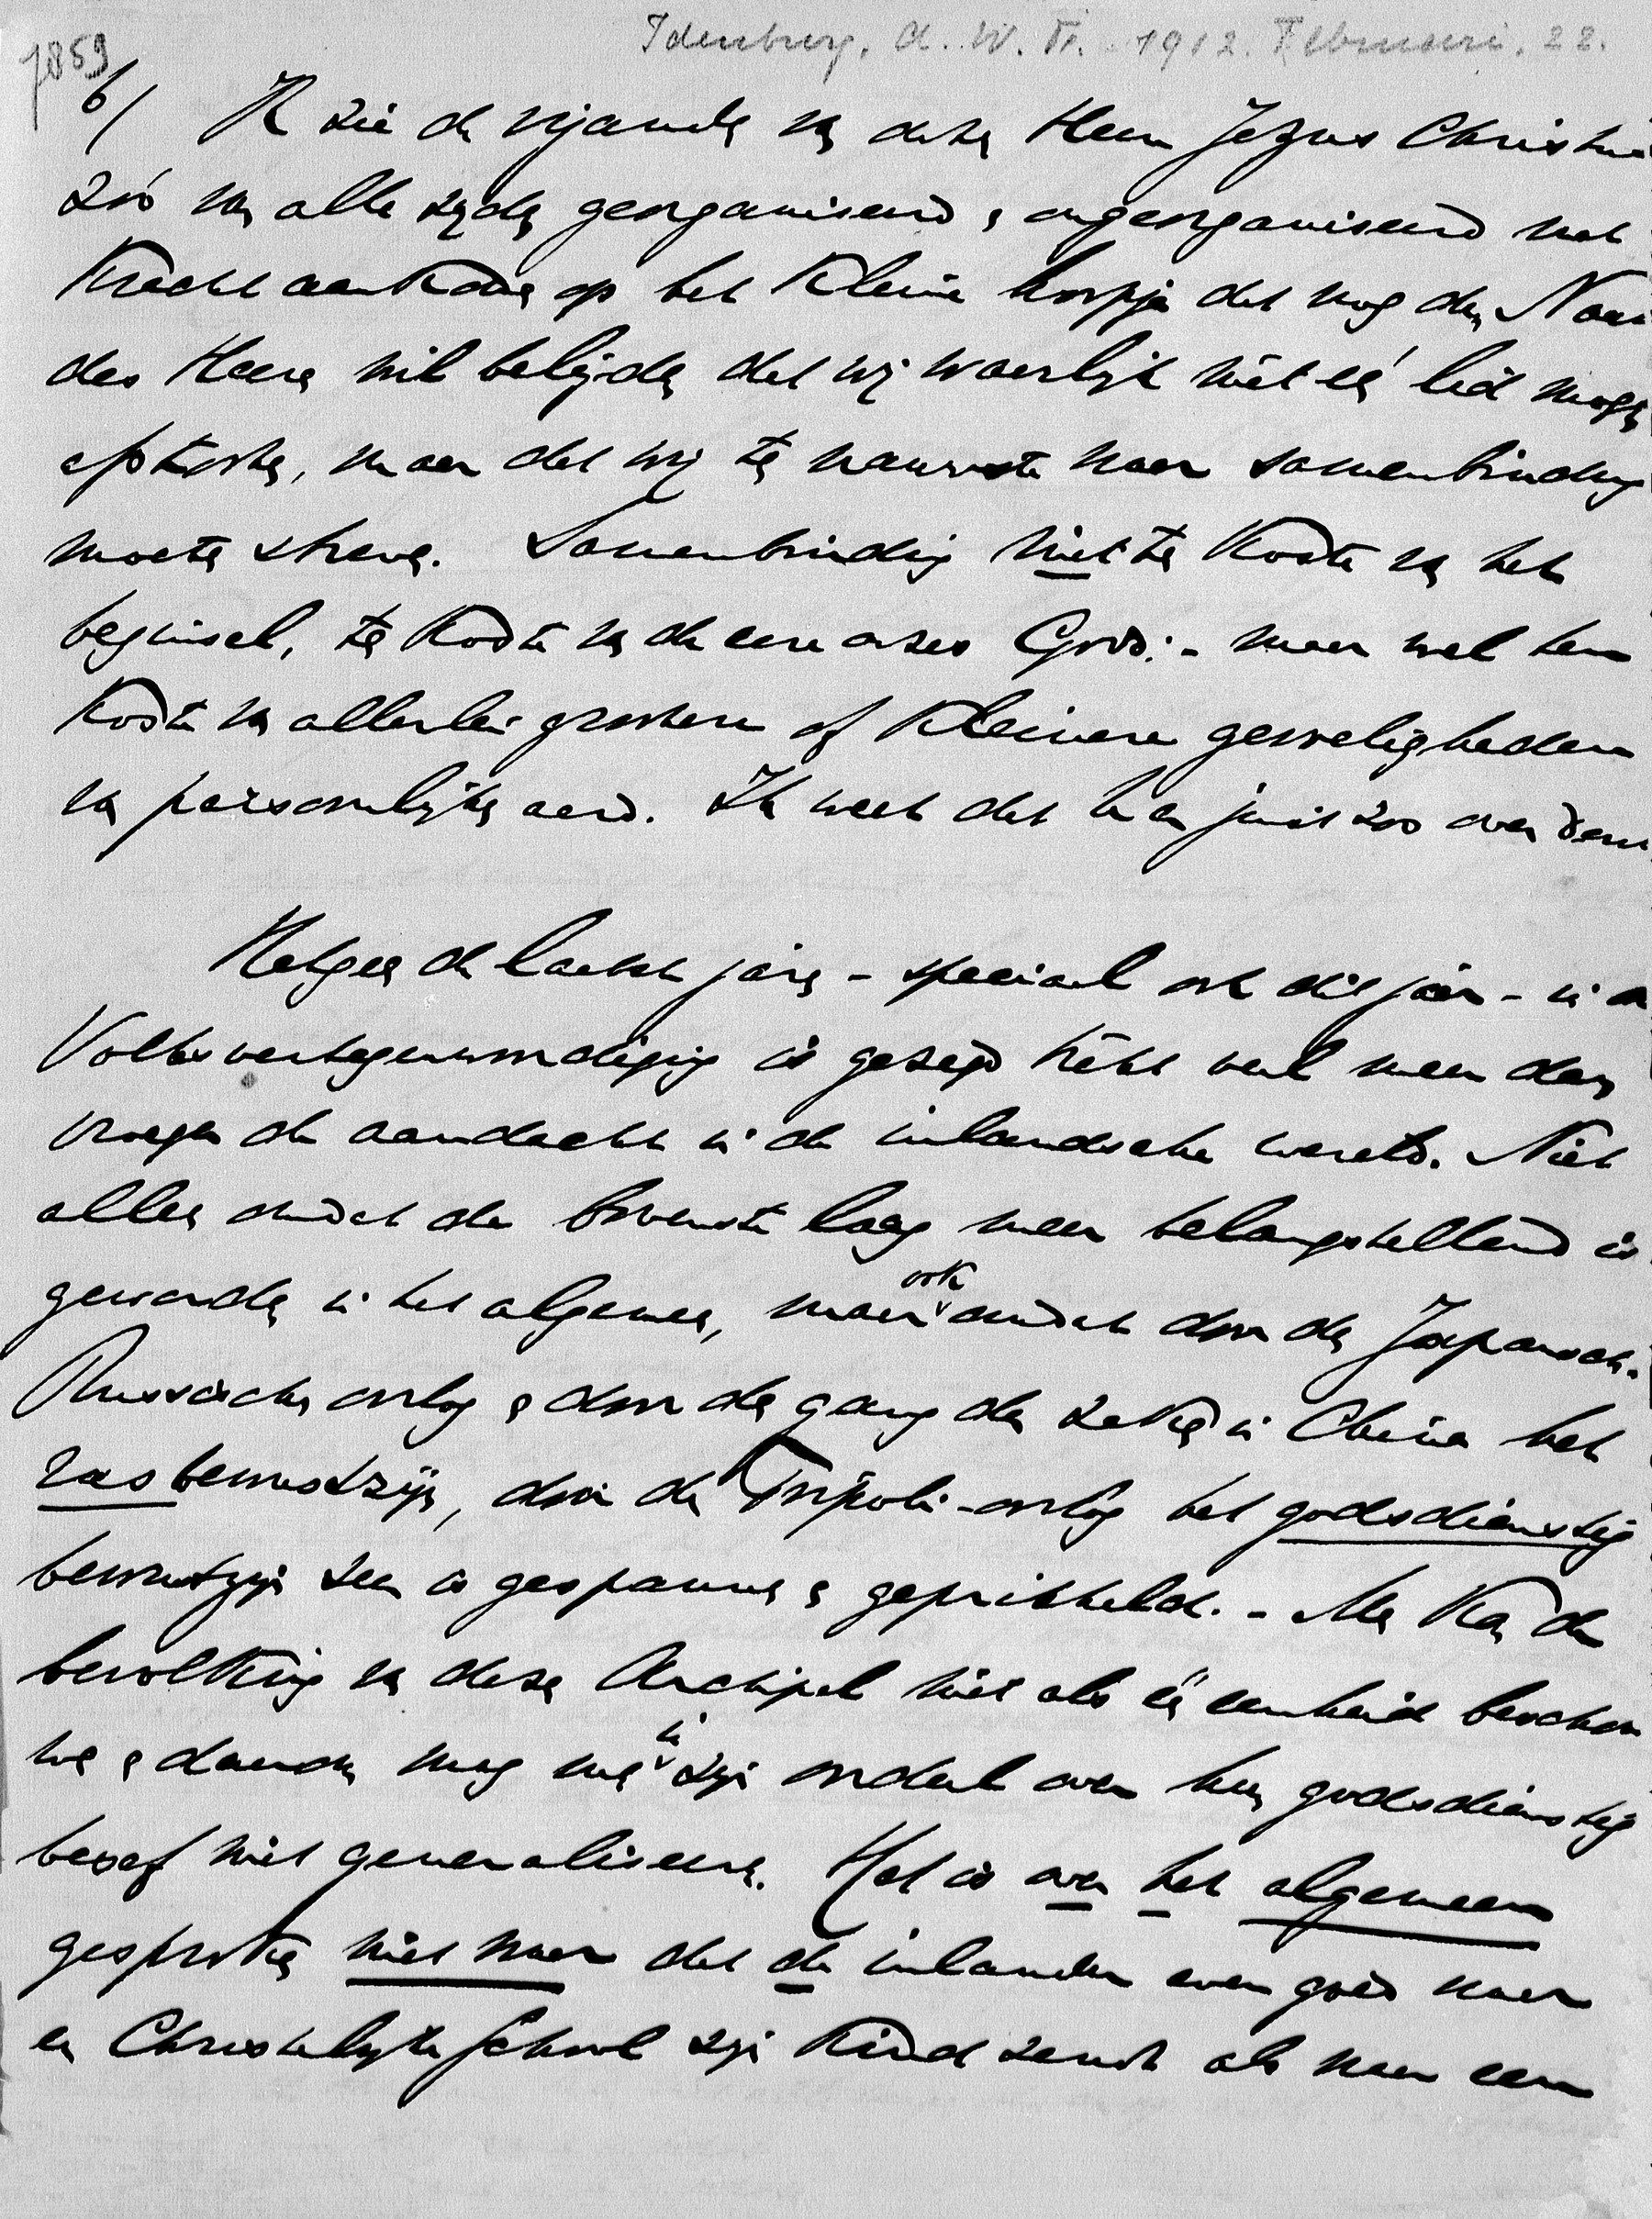 Idenburg, A. W. F. 1912. Februari. 22.
7859
6/ Ik zie de vijanden van onzen Heere Jezus Christus
zóó van alle zijden georganiseerd en ongeorganiseerd met
kracht aanrukken op het kleine hoopje dat nog den Naam
des Heeren wil belijden dat wij waarlijk niet één lid mogen
afstooten, maar dat wij ten nauwste naar samenbinding
moeten streven. Samenbinding niet ten koste van het
beginsel, ten koste van de eere onzes Gods; - maar wel ten
koste van allerlei grootere of kleinere gevoeligheden
van persoonlijken aard. Ik weet dat u er juist zoo over denkt
Hetgeen de laatste jaren - speciaal ook dit jaar - in de
Volksvertegenwoordiging is gezegd trekt veel meer dan
vroeger de aandacht in de inlandsche wereld. Niet
alleen omdat de bovenste laag meer belangstellend is
geworden in het algemeen, maar ook omdat door den Japansch-
Russischen oorlog en door den gang der zaken in China het
rasbewustzijn, door den Tripoli-oorlog het godsdienstig
bewustzijn zeer is gespannen en geprikkeld. - Men kan de
bevolking van dezen Archipel niet als één eenheid beschou
wen en daarom mag men in zijn oordeel over hun godsdienstig
besef niet generaliseeren. Het is over het algemeen
gesproken niet waar dat de inlander even goed naar
een Christelijke school zijn kind zendt als naar een